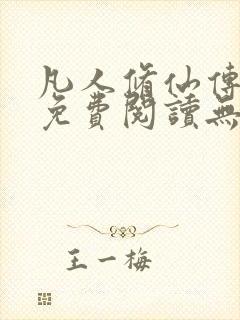 凡人脩仙傳
免費閱讀無
王一梅